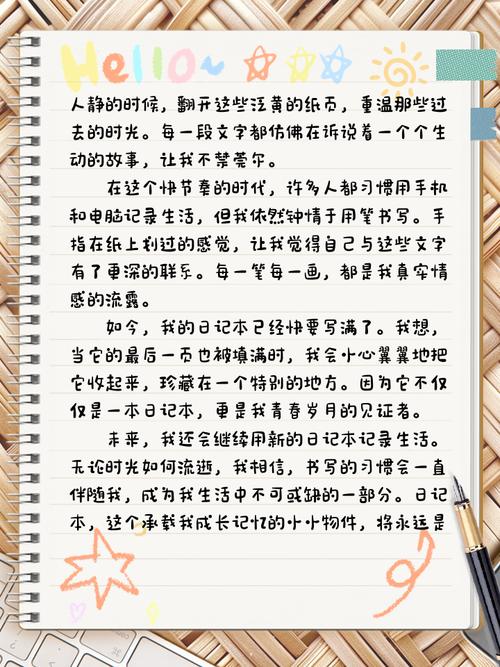 Hello~
人静的时候，翻开这些泛黄的纸页，重温那些过
去的时光。每一段文字都仿佛在诉说着一个个生
动的故事，让我不禁莞尔。
在这个快节奏的时代，许多人都习惯用手机
和电脑记录生活，但我依然钟情于用笔书写。手
指在纸上划过的感觉，让我觉得自己与这些文字
有了更深的联系。每一笔每一画，都是我真实情
感的流露。
如今，我的日记本已经快要写满了。我想，
当它的最后一页也被填满时，我会小心翼翼地把
它收起来，珍藏在一个特别的地方。因为它不仅
仅是一本日记本，更是我青春岁月的见证者。
未来，我还会继续用新的日记本记录生活。
无论时光如何流逝，我相信，书写的习惯会一直
伴随我，成为我生活中不可或缺的一部分。日记
本，这个承载我成长记忆的小小物件，将永远是